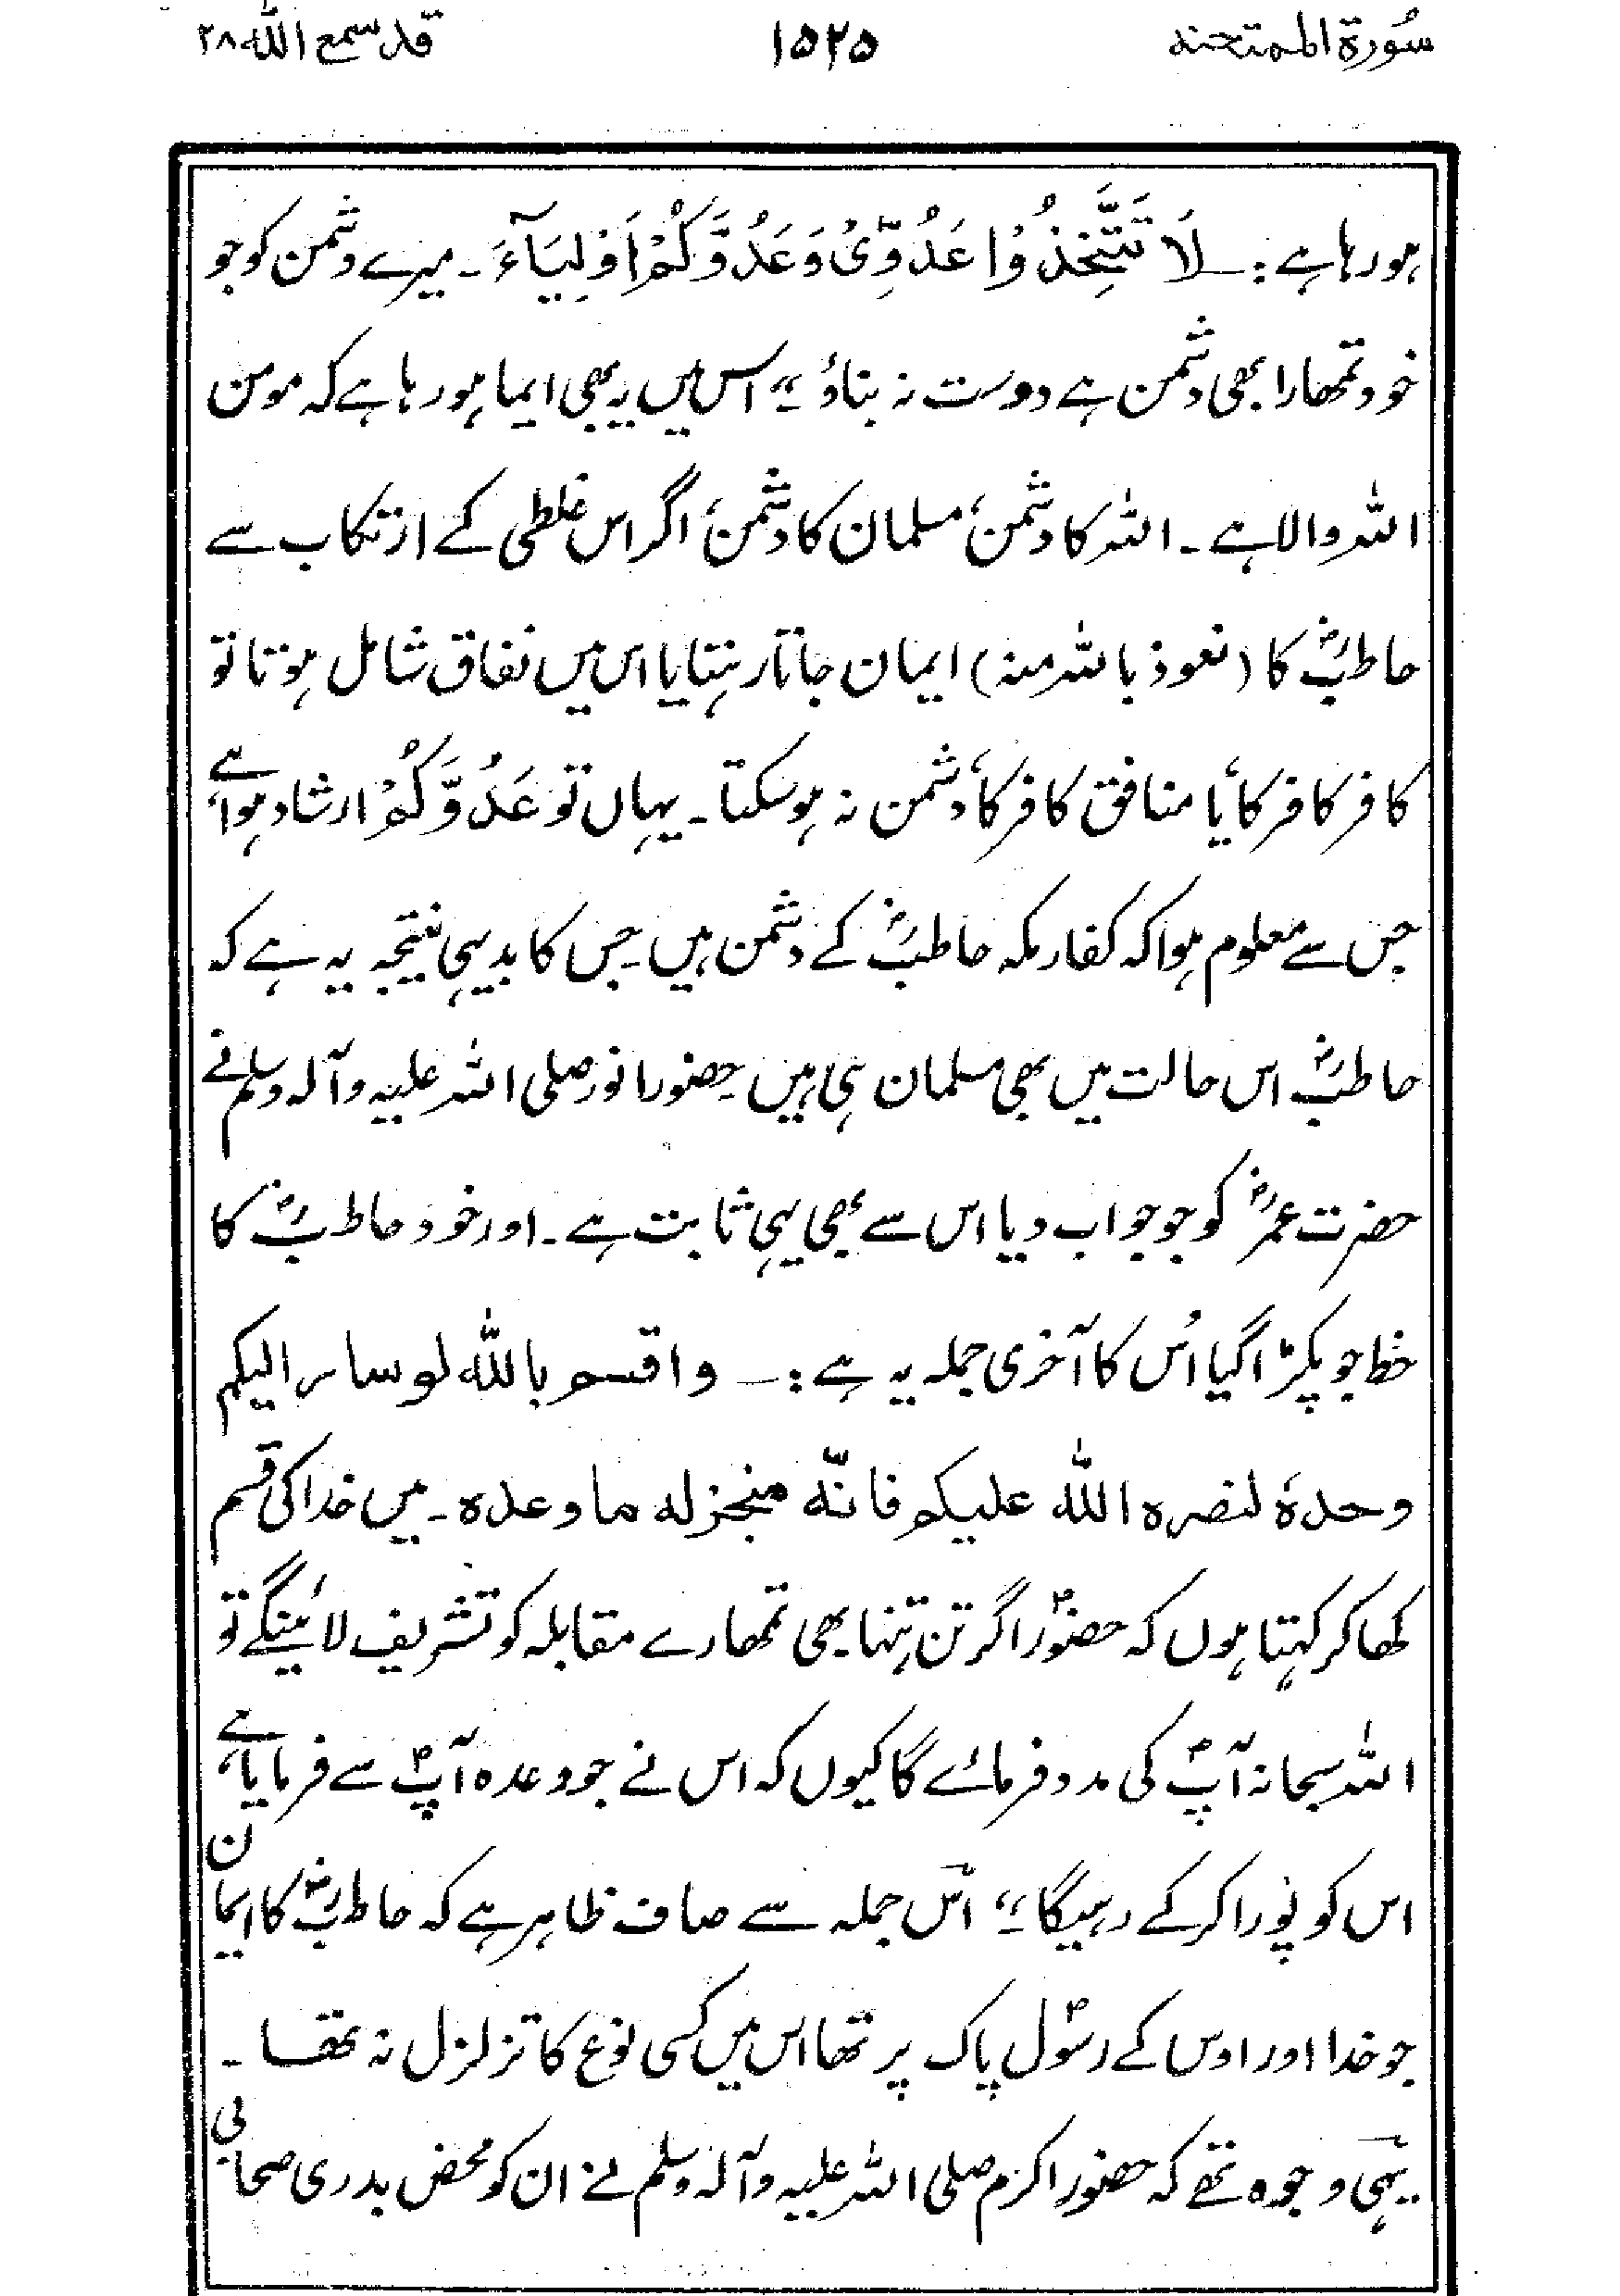 سُورۃ الممتحنہ ۱۵۲۵ قد سمع اللہ ۲۸
ہو رہا ہے :۔ لَا تَتَّخِذُوْا عَدُوِّیْ وَعَدُوَّكُمْ اَوْلِیَآءَ ۔ میرے دشمن کو جو
خود تمھارا بھی دشمن ہے دوست نہ بناؤ ۔" اس میں یہ بھی ایما ہو رہا ہے کہ مومن
اللہ والا ہے ۔ اللہ کا دشمن، مسلمان کا دشمن، اگر اس غلطی کے ارتکاب سے
حاطبؓ کا (نعوذ باللہ منہ) ایمان جاتا رہتا یا اس میں نفاق شامل ہوتا تو
کافر کافر کا، یا منافق کافر کا، دشمن نہ ہو سکتا ۔ یہاں تو عَدُوَّكُمْ ارشاد ہوا ہے،
جس سے معلوم ہوا کہ کفار مکہ حاطبؓ کے دشمن ہیں جس کا بدیہی نتیجہ یہ ہے کہ
حاطبؓ اس حالت میں بھی مسلمان ہی ہیں حضور انور صلی اللہ علیہ وآلہ وسلم نے
حضرت عمرؓ کو جو جواب دیا اس سے بھی یہی ثابت ہے ۔ اور خود حاطبؓ کا
خط جو پکڑا گیا اُس کا آخری جملہ یہ ہے :۔ واقسم باللہ لو سار الیکم
وحدہٗ لنصرہ اللہ علیکم فانّہ منجز لہ ما وعدہ ۔ میں خدا کی قسم
کھا کر کہتا ہوں کہ حضورؐ اگر تن تنہا بھی تمھارے مقابلہ کو تشریف لائینگے تو
اللہ سبحانہ آپؐ کی مدد فرمائے گا کیوں کہ اس نے جو وعدہ آپؐ سے فرمایا ہے،
اس کو پورا کر کے رہیگا ۔" اس جملہ سے صاف ظاہر ہے کہ حاطبؓ کا ایمان
جو خدا اور اوس کے رسولؐ پاک پر تھا اس میں کسی نوع کا تزلزل نہ تھا ۔
یہی وجوہ تھے کہ حضور اکرم صلی اللہ علیہ وآلہ وسلم نے ان کو محض بدری صحابی